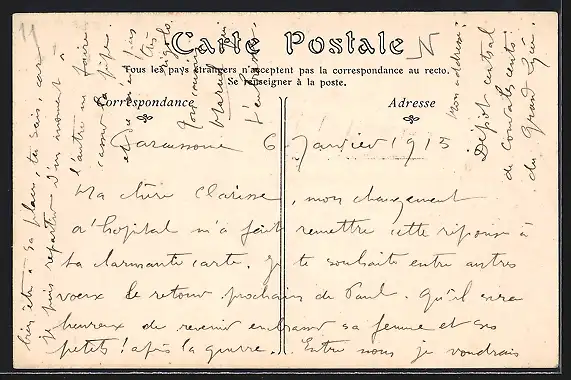 Carte Postale
Tous les pays étrangers n'acceptent pas la correspondance au recto.
Se renseigner à la poste.
Correspondance
Adresse
6 Janvier 1915
Ma chère Clarisse, mon changement
d'hopital m'a fait remettre cette réponse à
ta charmante carte. Je te souhaite entre autres
voeux le retour prochain de Paul. Qu'il sera
heureux de revenir embrassant sa femme et ses
petits! après la guerre. Entre nous je voudrais
bien être à sa place, tu sais, car
je puis repartir d'un moment à
l'autre me faire
casser la pipe.
et ce n'est pas
très
rigolo.
Mon adresse:
Dépôt central
de convalescents
du Grand